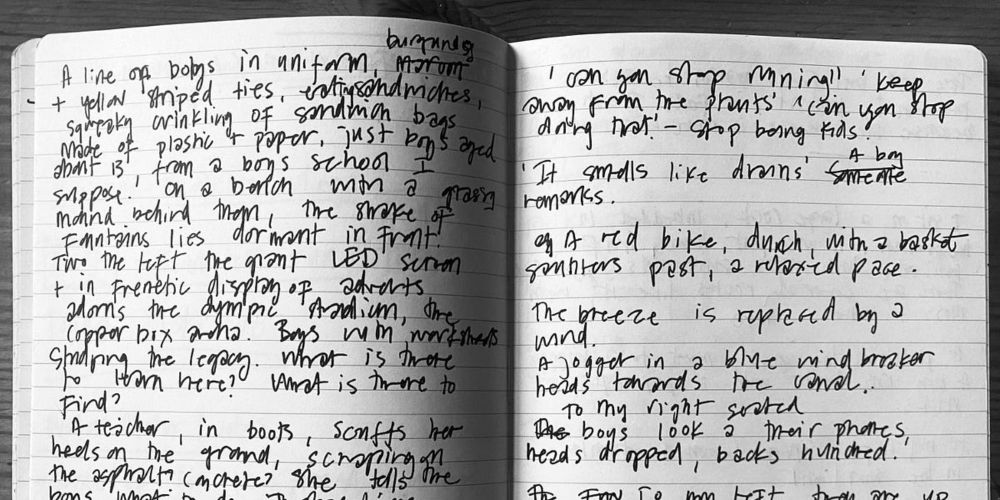 burgundy
A line of boys in uniform, maroon
+ yellow striped ties, eating sandwiches,
squeaky crinkling of sandwich bags
made of plastic + paper, just boys aged
about 13, from a boys school I
suppose. On a bench with a grassy
mound behind them, the snake of
Fountains lies dormant in front.
Two the left the giant LED screen
+ in frenetic display of adverts
adorns the olympic stadium, the
copper box arena. Boys with worksheets
studying the legacy. What is there
to learn here? What is there to
find?
A teacher, in boots, scuffs her
heels on the ground, scraping on
the asphalt? concrete? She tells the
boys what to do.
'Can you stop running!' 'Keep
away from the plants' 'Can you stop
doing that!' - Stop being kids.
'It smells like drains' A boy
someone
remarks.
A red bike, dutch, with a basket
saunters past, a relaxed pace.
The breeze is replaced by a
wind.
A jogger in a blue wind breaker
heads towards the canal..
To my right seated
The boys look a their phones,
heads dropped, backs hunched.
to my left